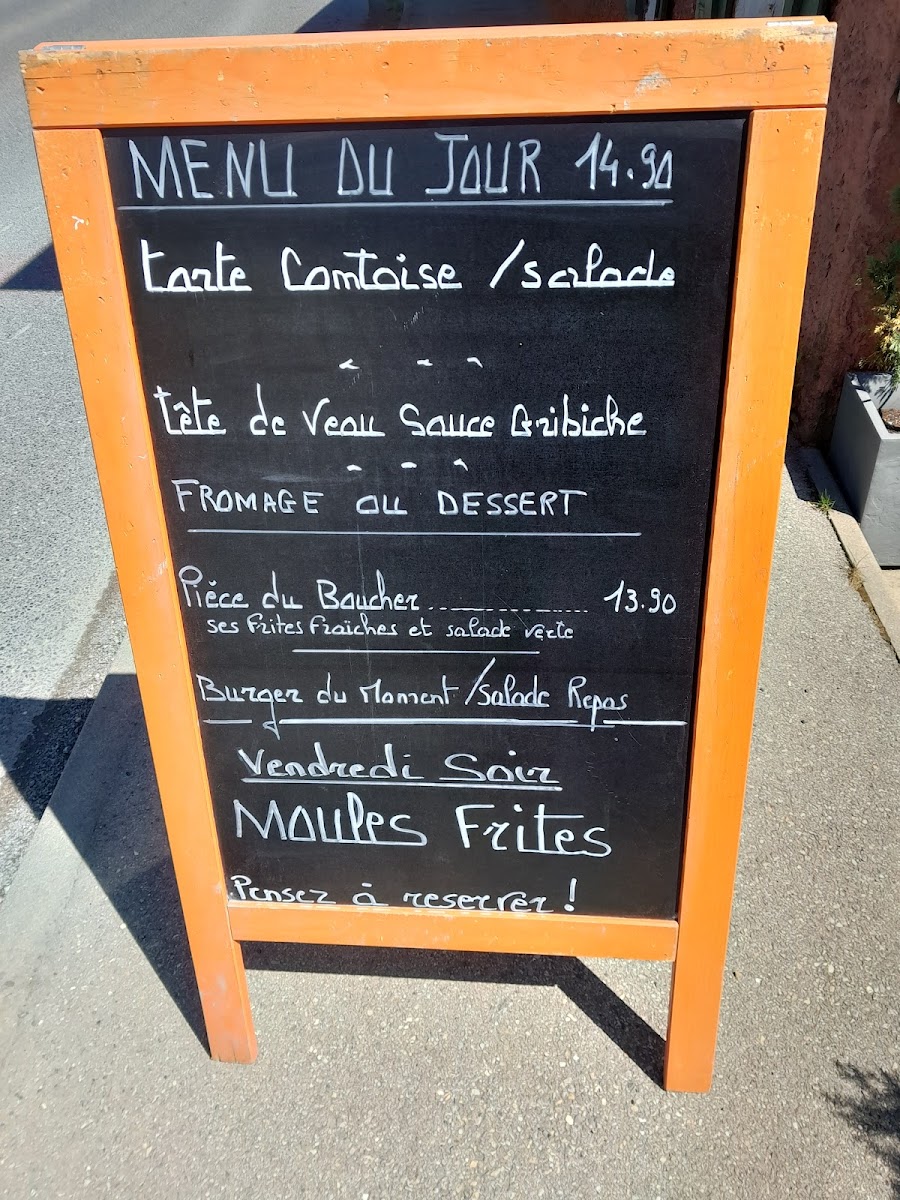 MENU DU JOUR 14.90
tarte Comtoise / salade
tête de veau Sauce Gribiche
FROMAGE OU DESSERT
Pièce du Boucher .................. 13.90
ses frites fraîches et salade verte
Burger du Moment / Salade Repas
Vendredi Soir
Moules Frites
Pensez à reserver !